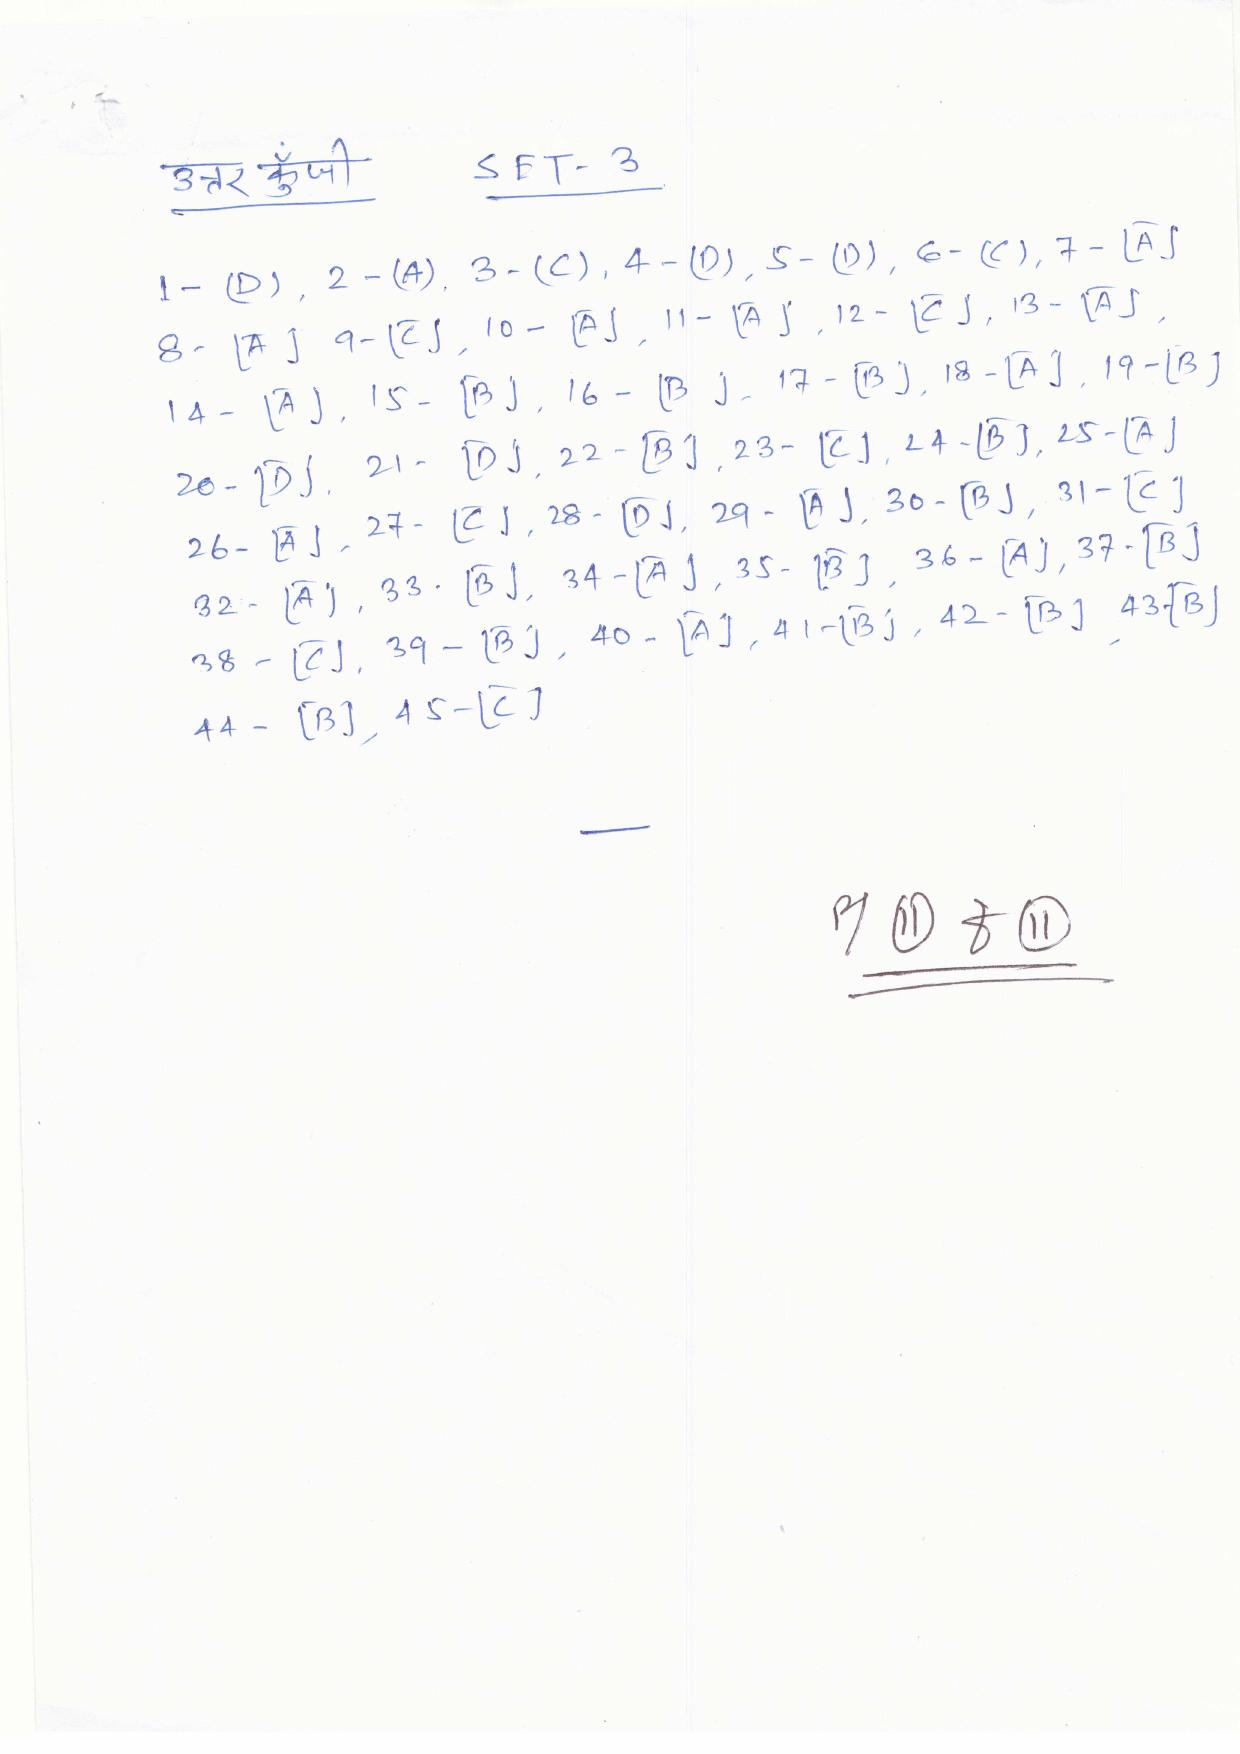 उत्तर कुँजी SET-3
1-(D), 2-(A), 3-(C), 4-(D), 5-(D), 6-(C), 7-[A]
8-[A] 9-[C], 10-[A], 11-[A], 12-[C], 13-[A],
14-[A], 15-[B], 16-[B], 17-[B], 18-[A], 19-[B]
20-[D], 21-[D], 22-[B], 23-[C], 24-[B], 25-[A]
26-[A], 27-[C], 28-[D], 29-[A], 30-[B], 31-[C]
32-[A], 33-[B], 34-[A], 35-[B], 36-[A], 37-[B]
38-[C], 39-[B], 40-[A], 41-[B], 42-[B], 43-[B]
44-[B], 45-[C]
11 11